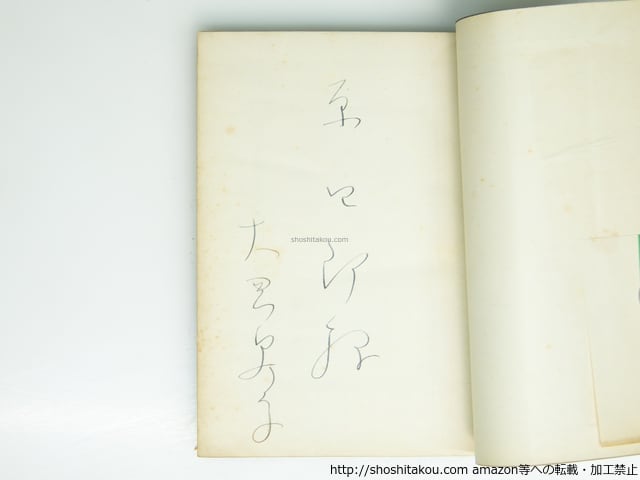 原四郎様
大
shoshitakou.com
http://shoshitakou.com amazon等への転載・加工禁止